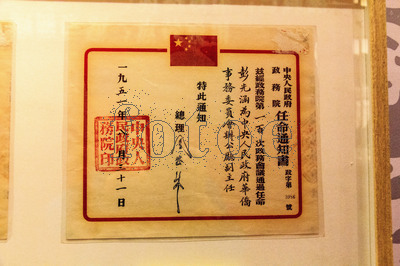 中央人民政府
政務院
任命通知書
政字第
號
茲經政務院第一百次政務會議通過任命
彭光涵為中央人民政府華僑
事務委員會辦公廳副主任
特此通知
總理
一九五一年
月
十一日
中央人
民政府政
務院印